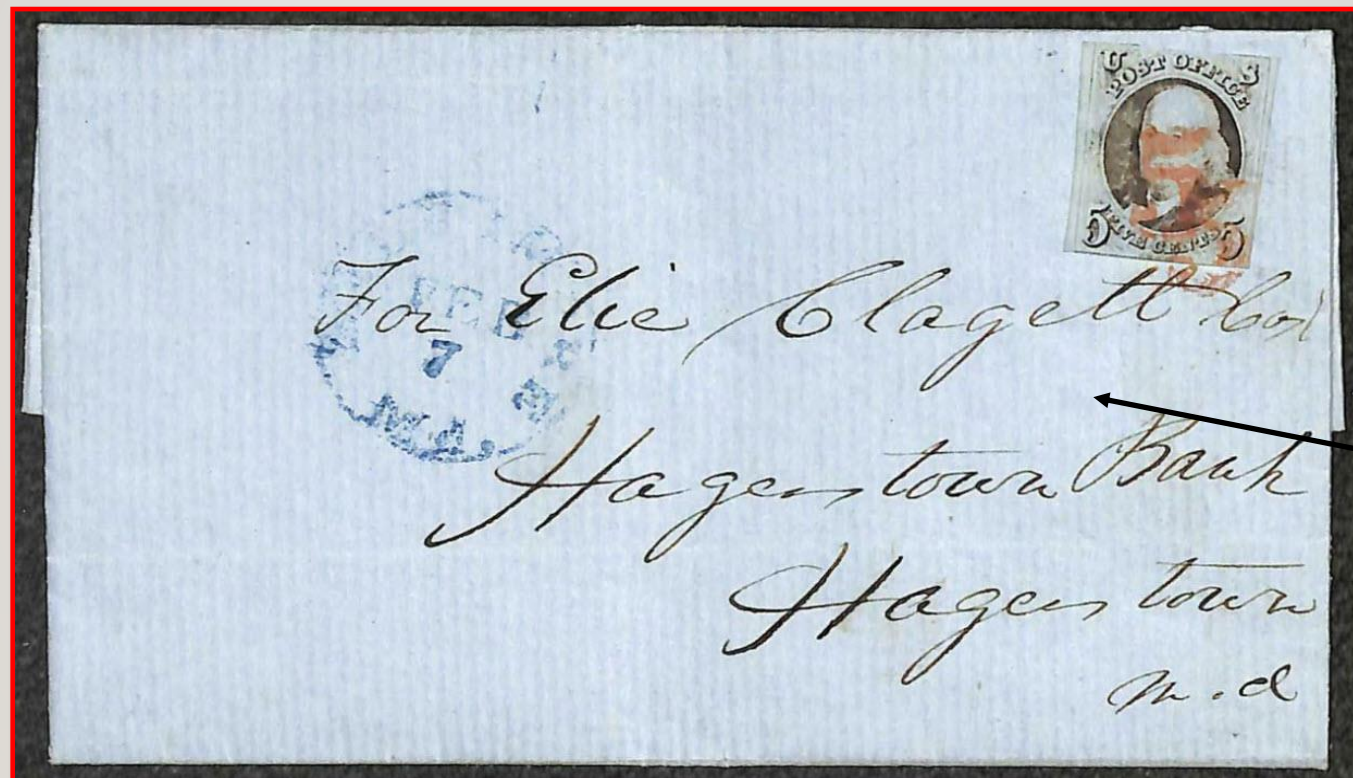 U S
POST OFFICE
5 FIVE CENTS 5
FEB
7
For Elie Clagett
Hagerstown Bank
Hagerstown
M.d